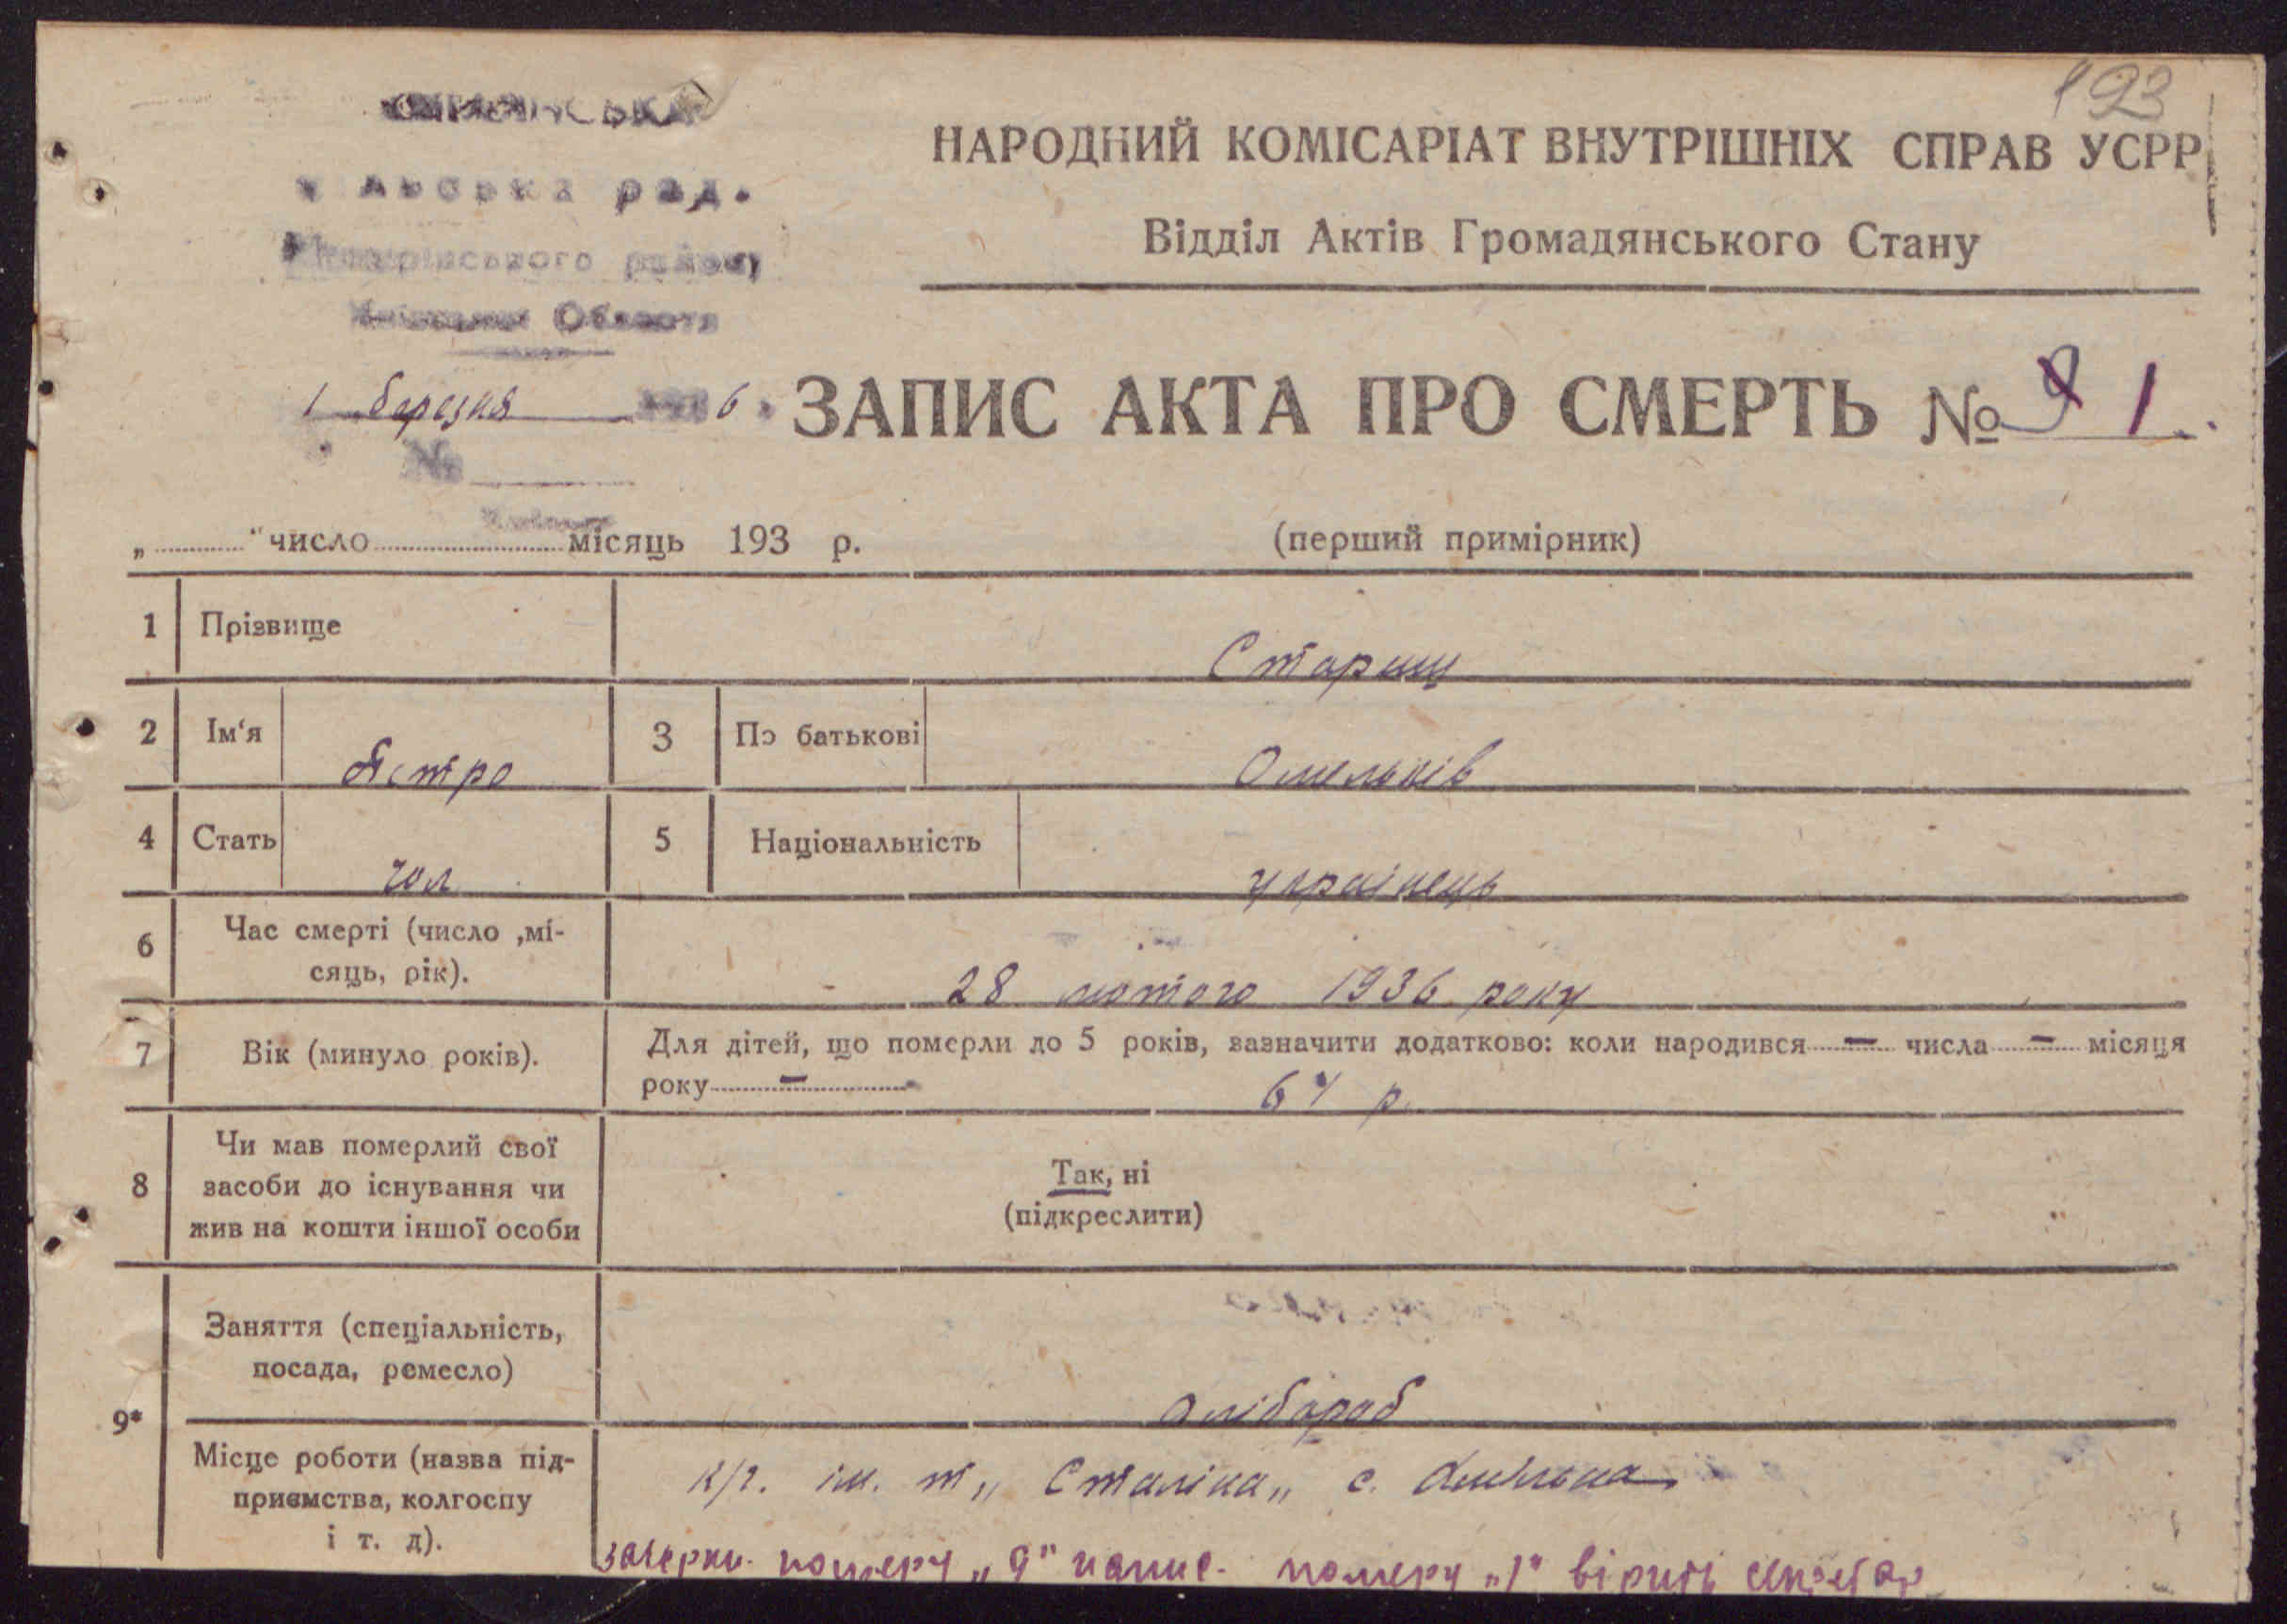 193
НАРОДНИЙ КОМІСАРІАТ ВНУТРІШНІХ СПРАВ УСРР
рад.
Відділ Актів Громадянського Стану
Області
1 березня 6.
ЗАПИС АКТА ПРО СМЕРТЬ № 9 1
№
„ “ число місяць 193 р.
(перший примірник)
1 Прізвище Стариц
2 Ім‘я Пєтро 3 По батькові Омельків
4 Стать чол 5 Національність українець
6 Час смерті (число ,мі-
сяць, рік).
28 лютого 1936 року
7 Вік (минуло років). Для дітей, що померли до 5 років, зазначити додатково: коли народився — числа — місяця
року — 64 р.
8 Чи мав померлий свої
засоби до існування чи
жив на кошти іншої особи
Так, ні
(підкреслити)
9*
Заняття (спеціальність,
посада, ремесло)
хлібороб
Місце роботи (назва під-
приємства, колгоспу
і т. д).
к/г. ім. т „ Сталіна „ с.
зачеркн. номеру „9" напис. номеру „1" вірить секретар